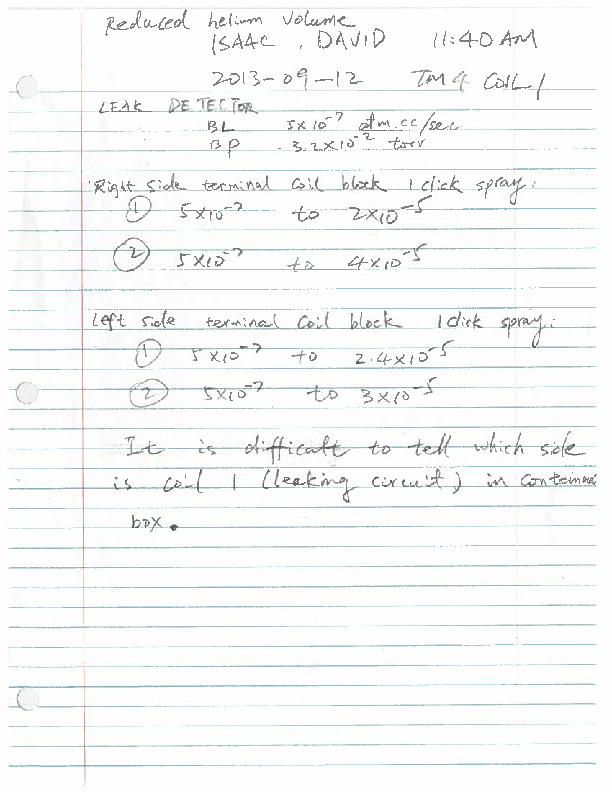 Reduced helium volume
ISAAC, DAVID 11:40 AM
2013-09-12 TM4 COIL 1
LEAK DETECTOR
BL 5x10⁻⁷ atm cc/sec
BP 3.2x10⁻² torr
Right side terminal coil block 1 click spray:
① 5x10⁻⁷ to 2x10⁻⁵
② 5x10⁻⁷ to 4x10⁻⁵
Left side terminal coil block 1 click spray:
① 5x10⁻⁷ to 2.4x10⁻⁵
② 5x10⁻⁷ to 3x10⁻⁵
It is difficult to tell which side
is coil 1 (leaking circuit) in
box.